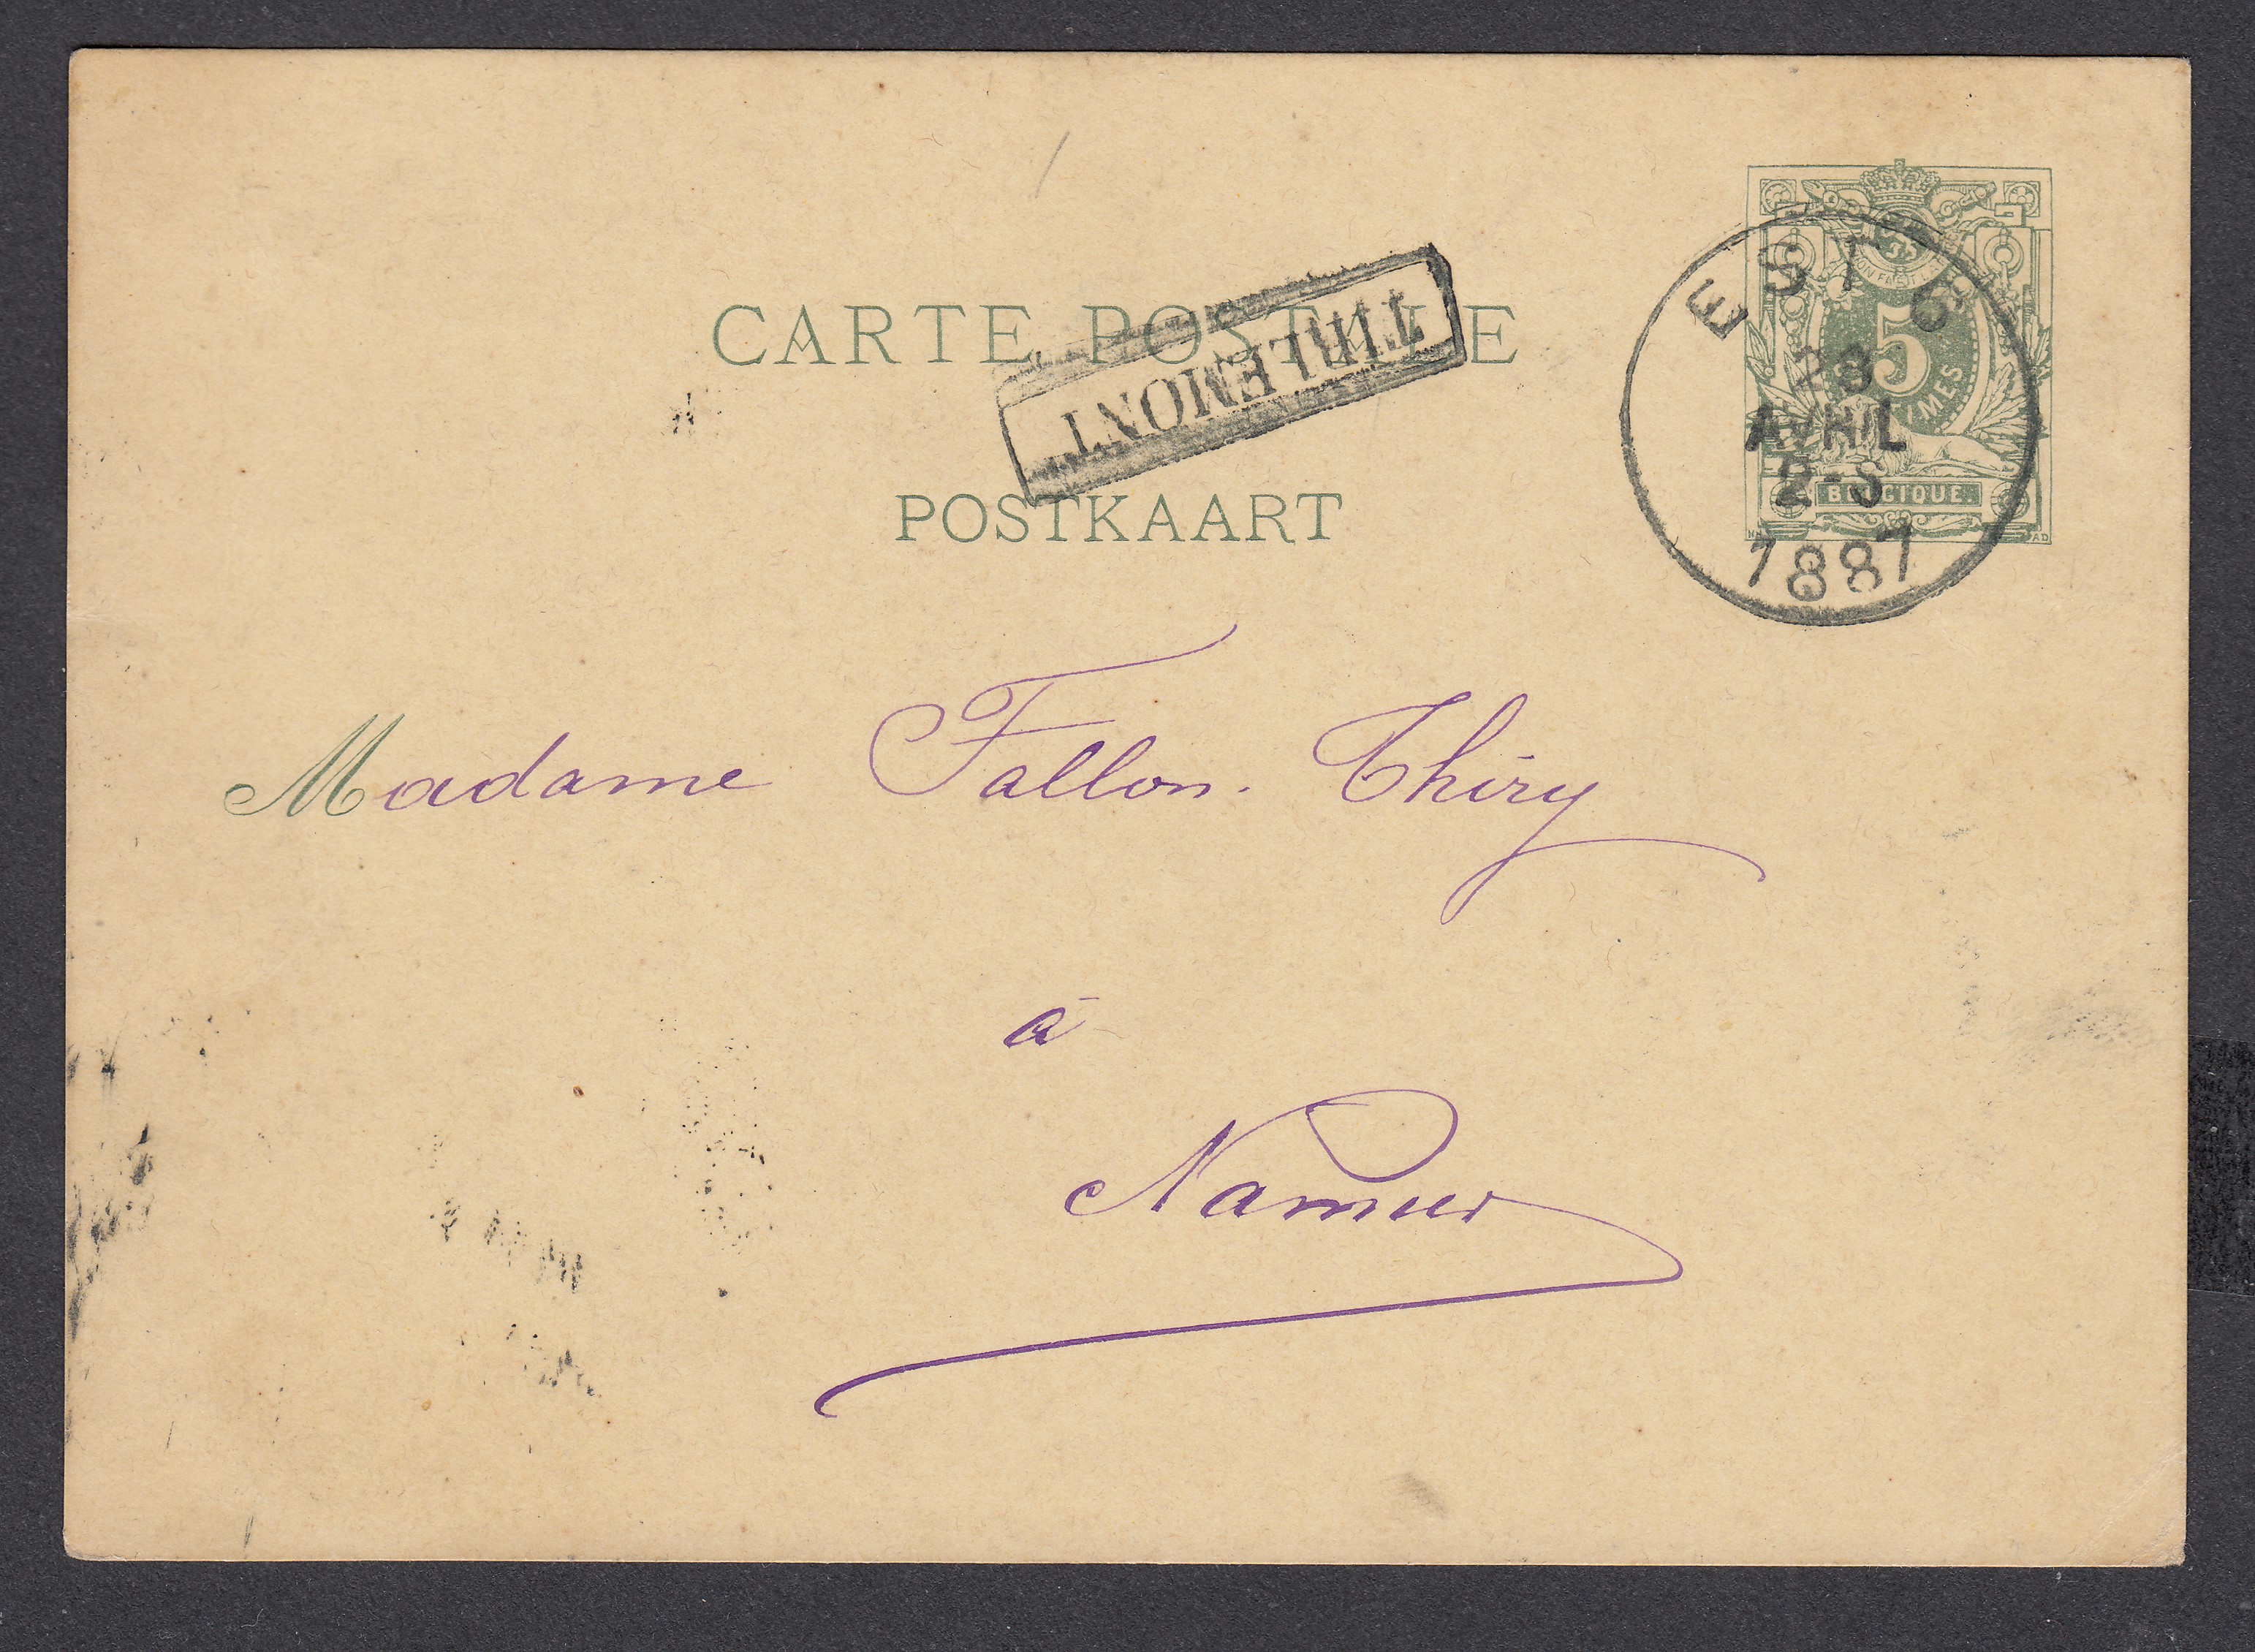 CARTE POSTALE
TIRLEMONT
POSTKAART
EST 6
AVRIL
2-S
1887
5
BELGIQUE.
Madame Fallon. Thiry
à
Namur